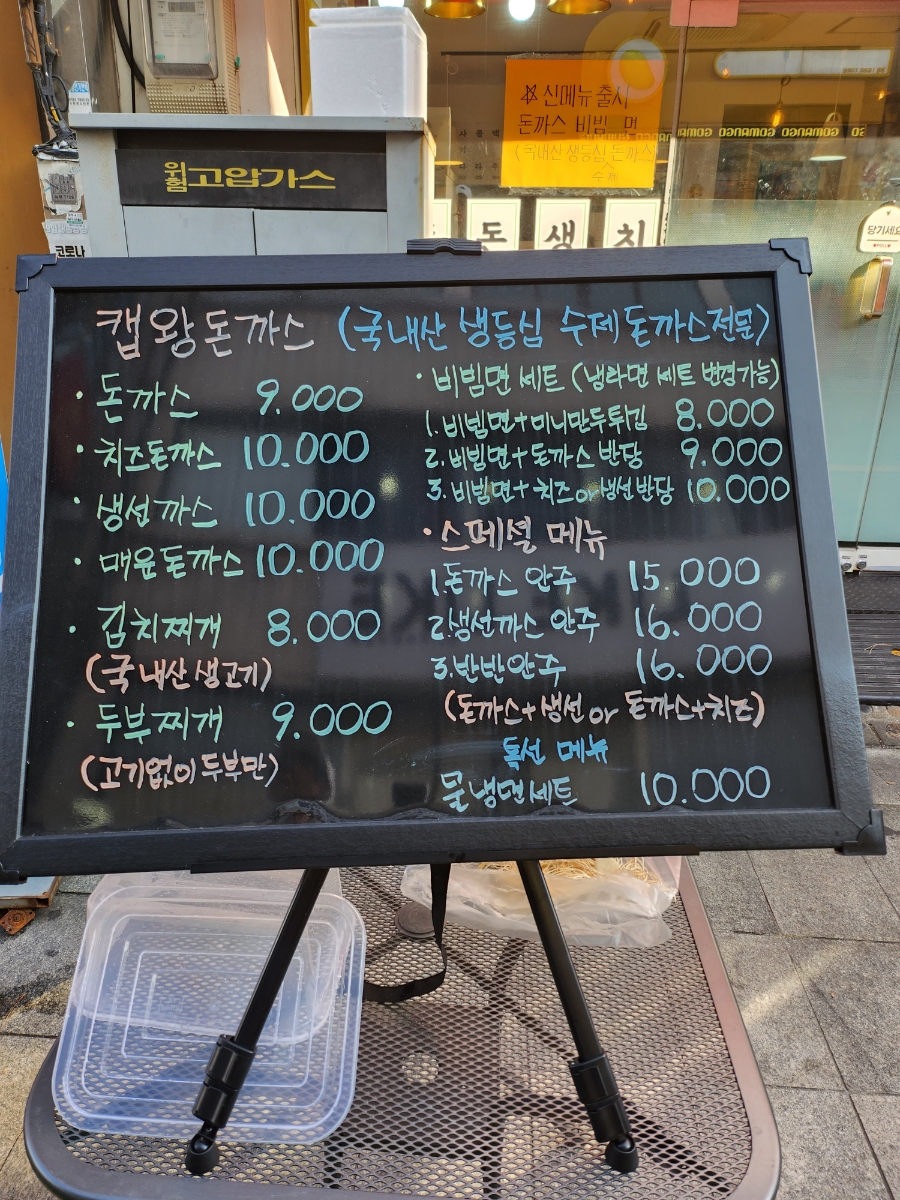 ✡ 신메뉴 출시
돈까스 비빔 면
(국내산 생등심 돈까스)
수제
위험 고압가스
GOMANGO GOMANGO GOMANGO
코로나
당기세요
PULL
동 생 치
캡왕돈까스 (국내산 생등심 수제돈까스전문)
· 돈까스 9.000
· 치즈돈까스 10.000
· 생선까스 10.000
· 매운돈까스 10.000
· 김치찌개 8.000
(국내산생고기)
· 두부찌개 9.000
(고기없이두부만)
· 비빔면 세트 (냉라면 세트 변경가능)
1. 비빔면+미니만두튀김 8.000
2. 비빔면+돈까스 반당 9.000
3. 비빔면+치즈or생선반당 10.000
· 스페셜 메뉴
1.돈까스 안주 15.000
2.생선까스 안주 16.000
3.반반안주 16.000
(돈까스+생선 or 돈까스+치즈)
특선 메뉴
물냉면세트 10.000